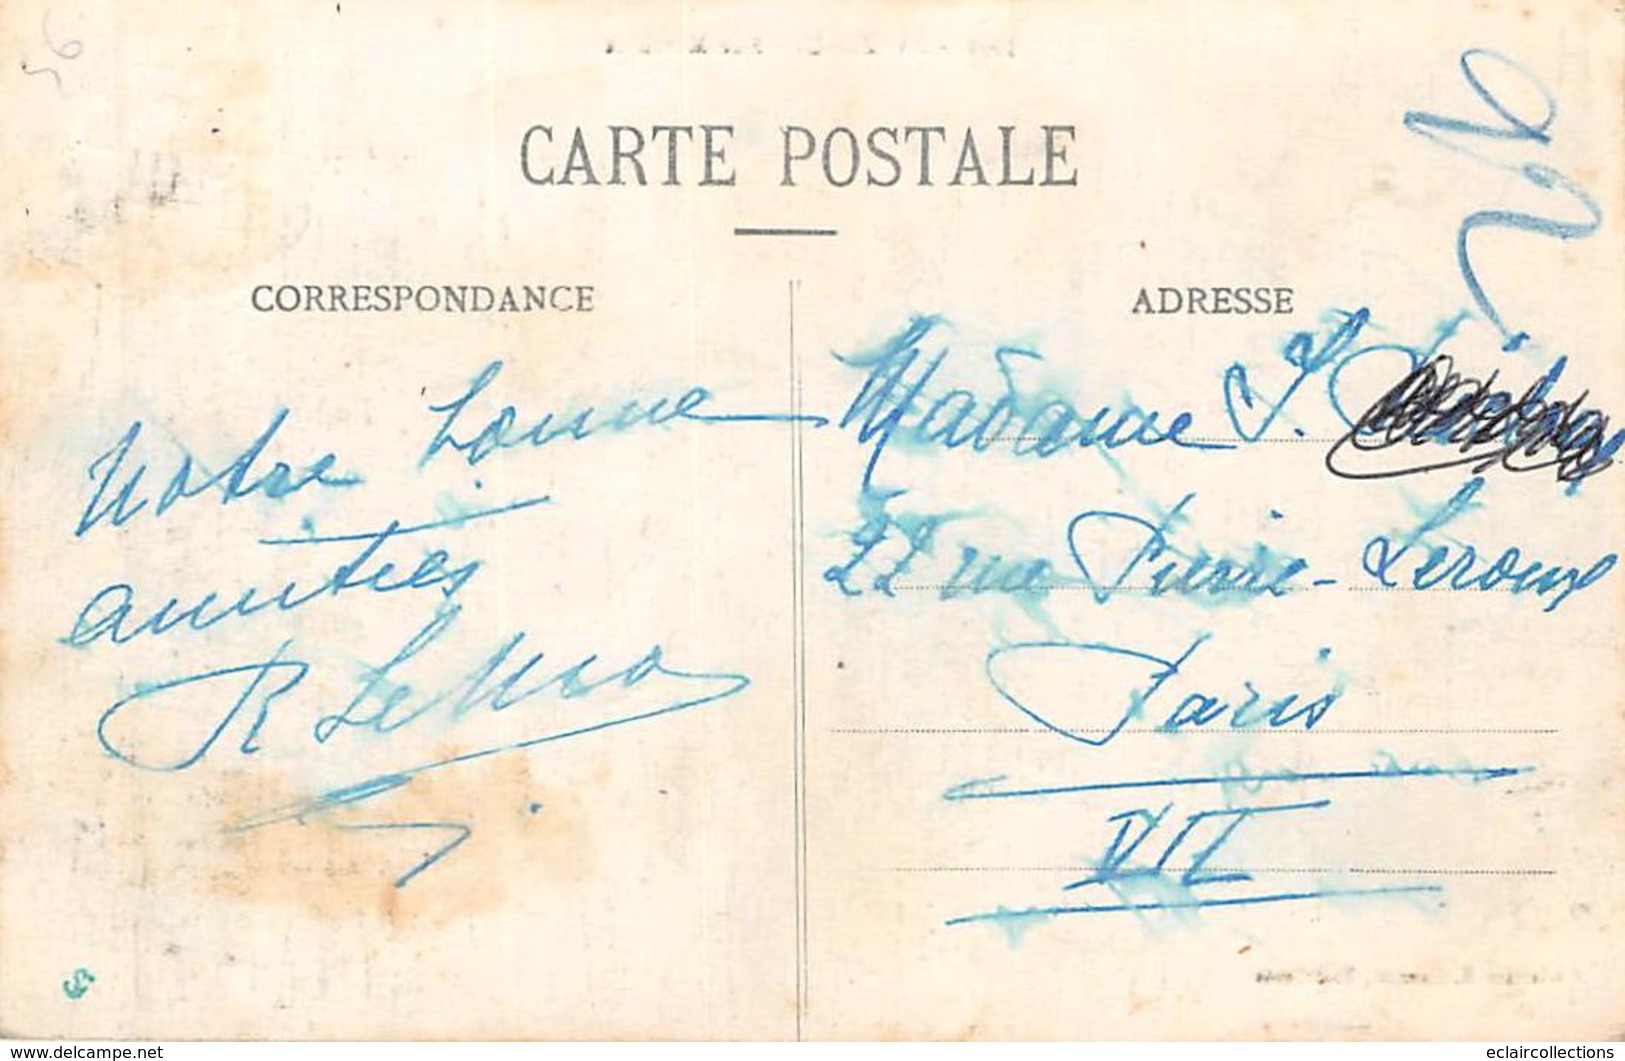 56
CARTE POSTALE
CORRESPONDANCE
ADRESSE
Notre bonne
amitiés
R Le
Madame J.
22 rue Pierre-Leroux
Paris
VII
www.delcampe.net
eclaircollections